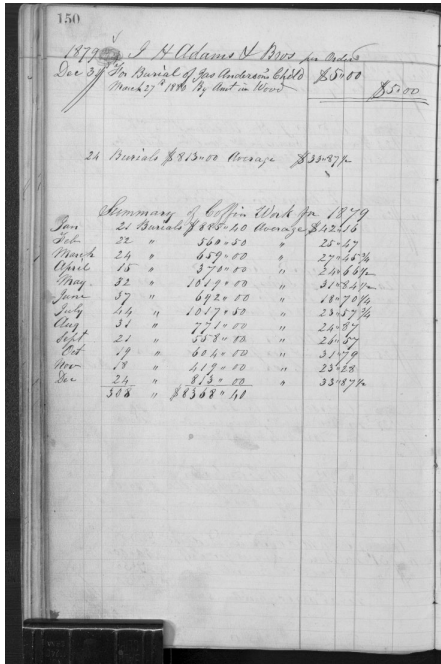 150
1879 J H Adams & Bros per Orders
Dec 31 For Burial of Jas Anderson's Child $5"00
March 27th 1880 By Amt in Wood $5"00
24 Burials $813"00 Average $33"87½
Summary of Coffin Work for 1879
Jan 21 Burials $885"40 Average $42"16
Feb 22 " 560"50 " 25"47
March 24 " 659"00 " 27"45¾
April 15 " 370"00 " 24"66½
May 32 " 1019"00 " 31"84½
June 37 " 692"00 " 18"70¼
July 44 " 1017"50 " 23"57¾
Aug 31 " 771"00 " 24"87
Sept 21 " 558"00 " 26"57
Oct 19 " 604"00 " 31"79
Nov 18 " 419"00 " 23"28
Dec 24 " 813"00 " 33"87½
308 " $8368"40